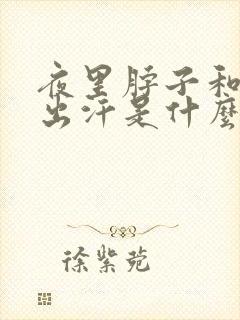 夜里脖子和
出汗是什麼
徐紫苑